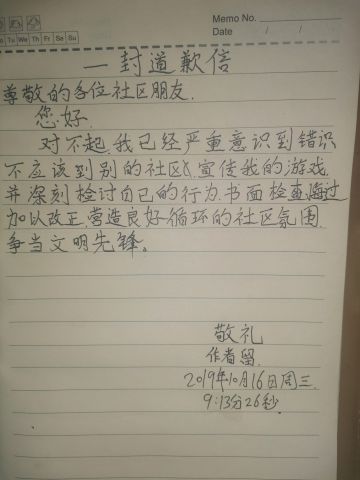 Memo No.
Mo Tu We Th Fr Sa Su
Date / /
一封道歉信
尊敬的各位社区朋友.
您好.
对不起.我已经严重意识到错识
不应该到别的社区宣传我的游戏.
并深刻检讨自己的行为.书面检查悔过
加以改正.营造良好循环的社区氛围.
争当文明先锋。
敬礼
作者留.
2019年10月16日周三.
9:13分26秒.